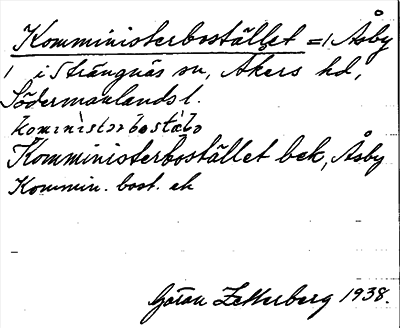 Komministerbostället = 1 Åsby
1 i Strängnäs sn, Åkers hd,
Södermanlands l.
Kommin. bost. ek
Komministerbostället bek, Åsby
Göran Zetterberg 1938.